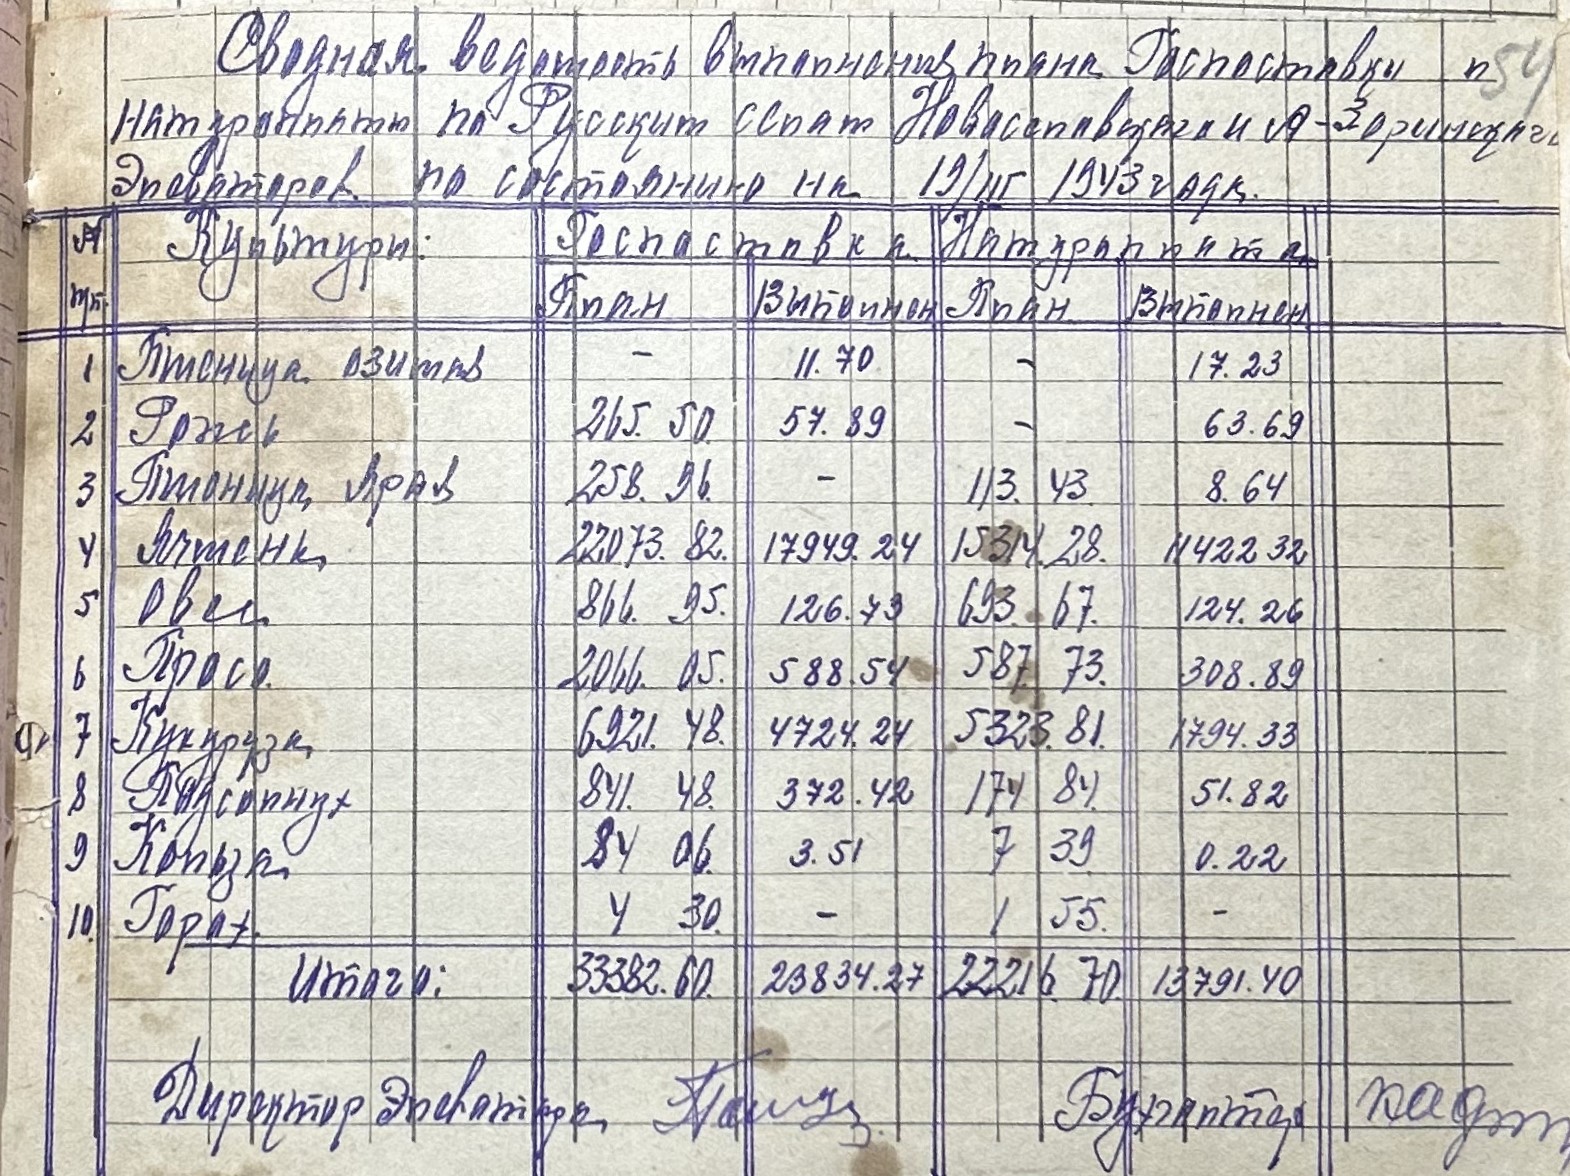 Сводная ведомость выполнения плана Госпоставки и 54
натуроплаты по Русским селам Новоселовского и А-Зоринского
Элеваторов по состоянию на 19/III 1943 года.
№ Культуры: Госпоставка Натуроплата
пп. План Выполнен План Выполнен
1 Пшеница озимая - 11.70 - 17.23
2 Рожь 265.50 57.89 - 63.69
3 Пшеница яров 258.96 - 113.43 8.64
4 Ячмень 22073.82. 17949.24 15314.28. 11422 32
5 Овес 866.95. 126.73 693.67. 124.26
6 Просо 2066.05. 588.54 587.73. 308.89
7 Кукуруза 6921.48. 4724.24 5323.81. 1794.33
8 Подсолнух 841.48. 372.42 174 84. 51.82
9 Кольза 84 06. 3.51 7 39 0.22
10. Горох 4 30. - 1 55. -
Итого: 33382.60. 23834.27 22216.70 13791.40
Директор Элеватора Бухгалтер